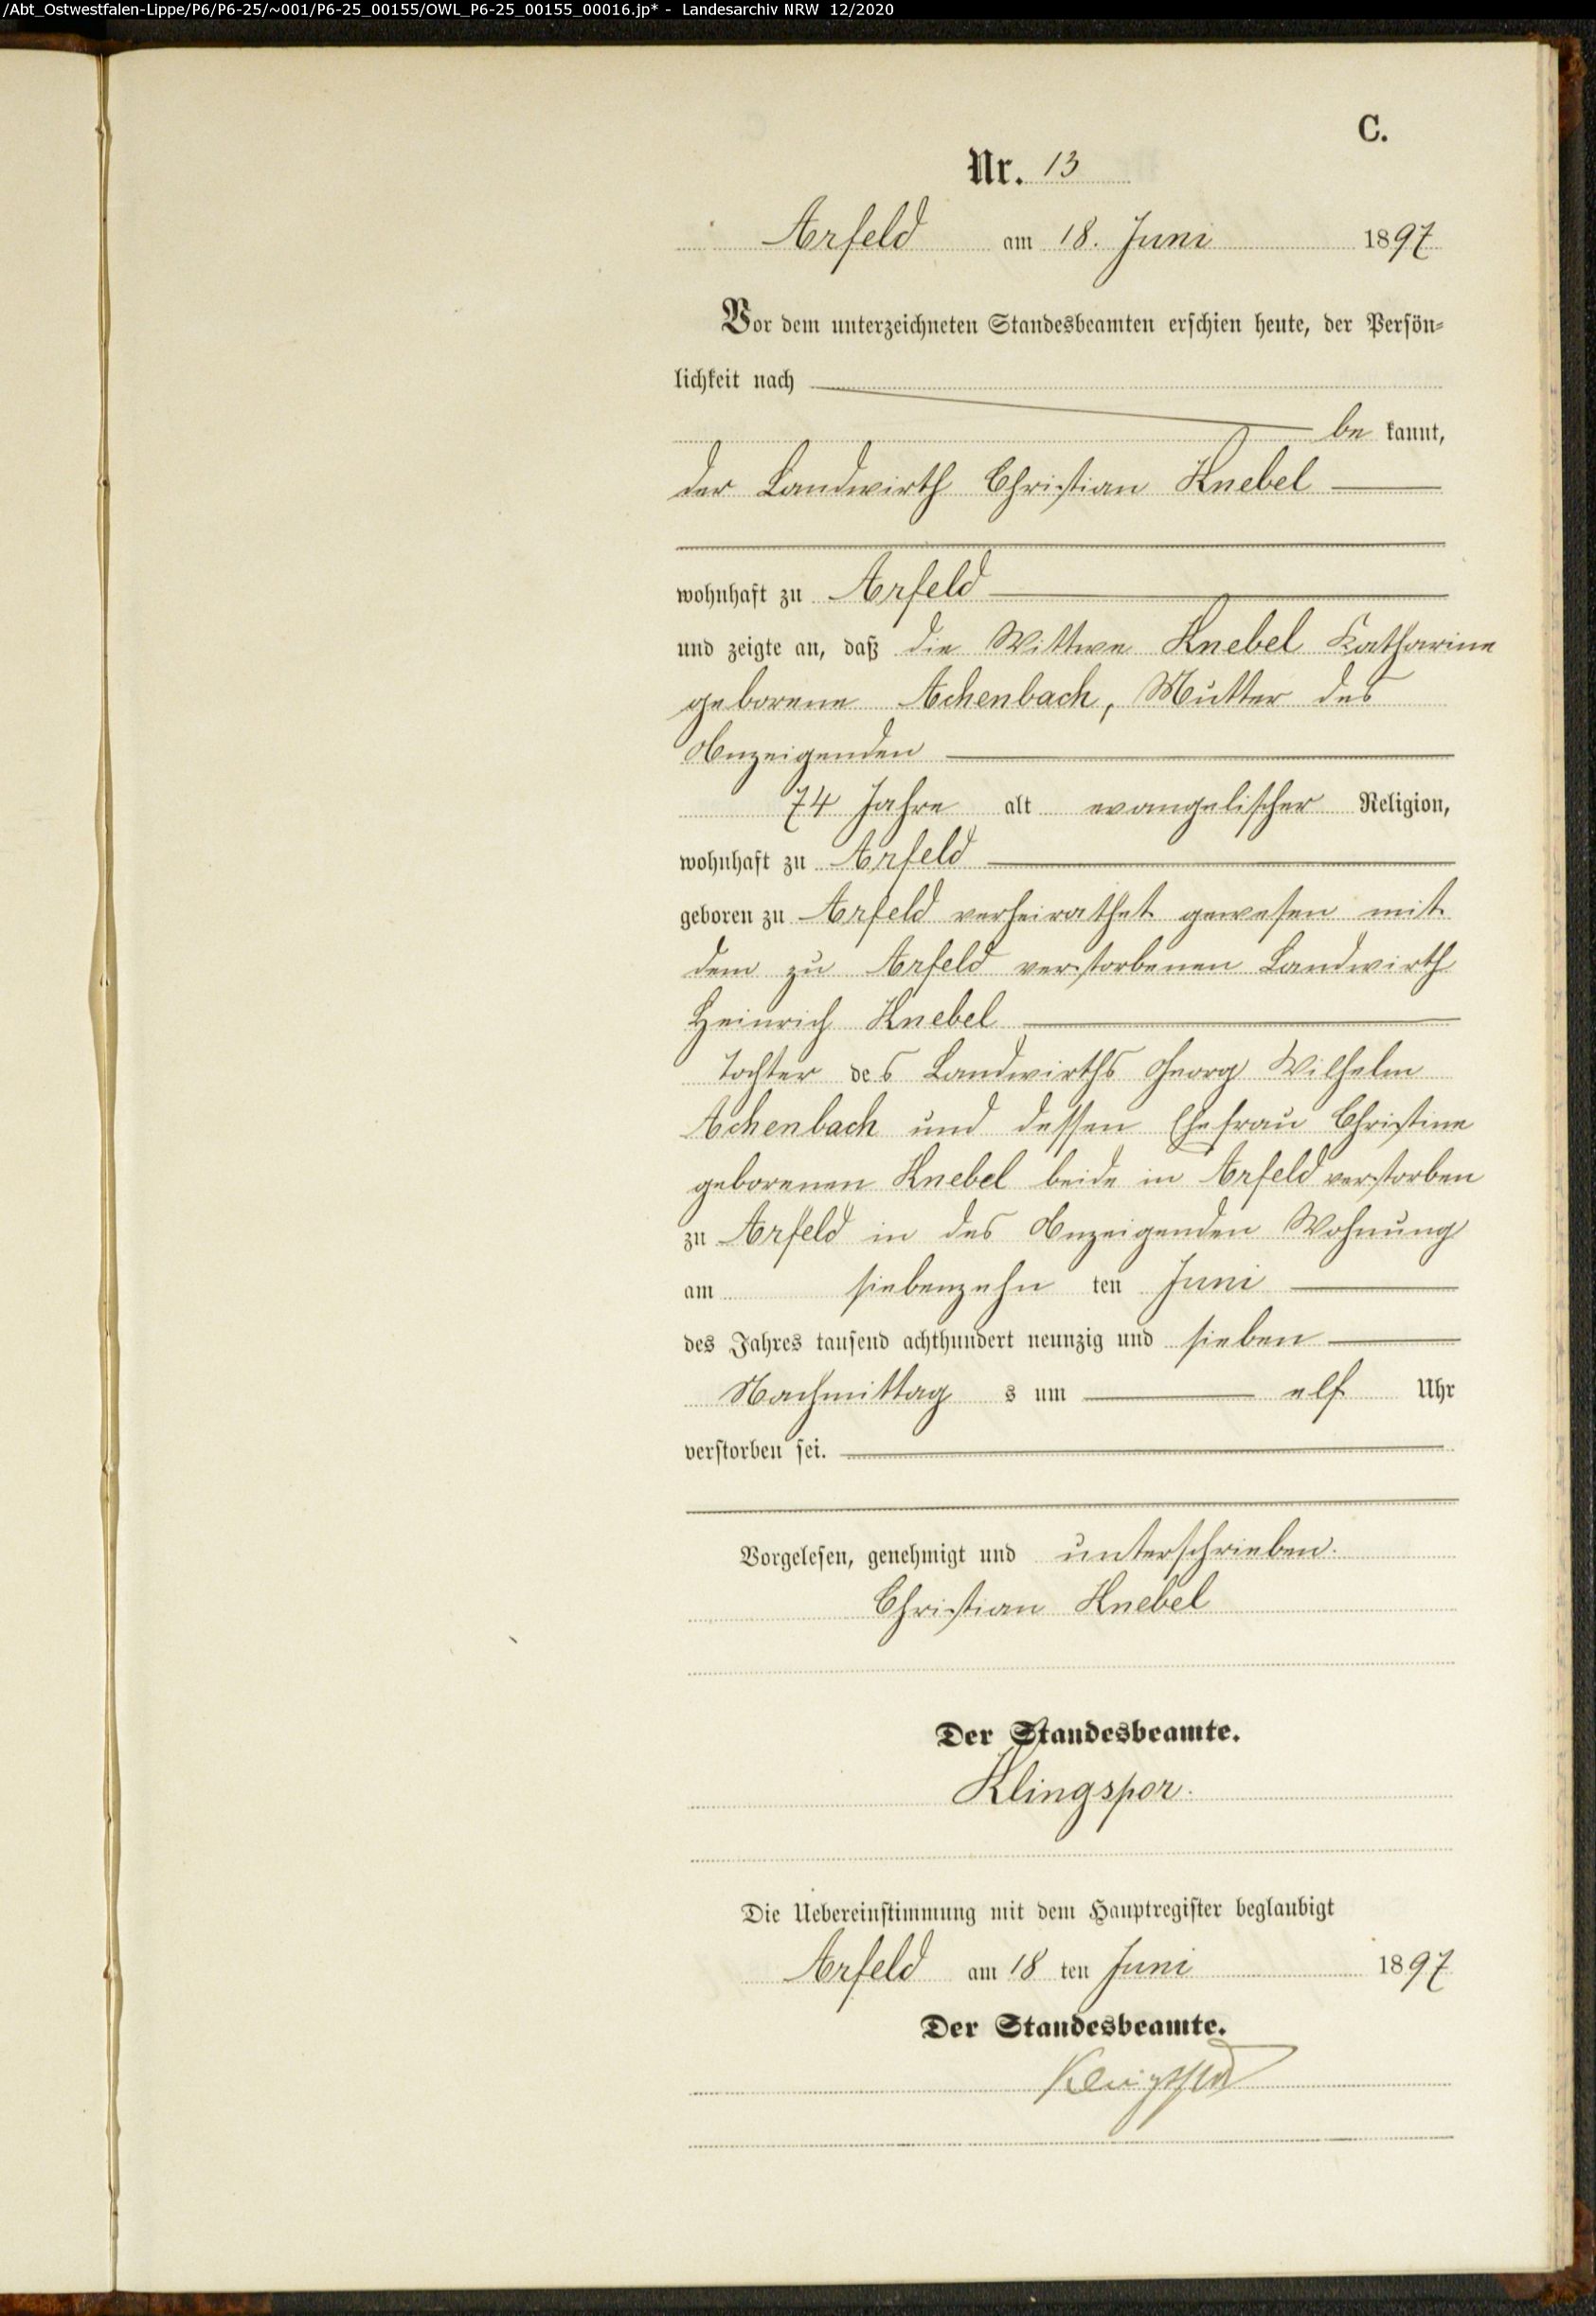 /Abt_Ostwestfalen-Lippe/P6/P6-25/~001/P6-25_00155/OWL_P6-25_00155_00016.jp* - Landesarchiv NRW 12/2020
C.
Nr. 13
Arfeld am 18. Juni 1897
Vor dem unterzeichneten Standesbeamten erschien heute, der Persön-
lichkeit nach
be kannt,
der Landwirth Christian Knebel
wohnhaft zu Arfeld
und zeigte an, daß die Wittwe Knebel Katharine
geborene Achenbach, Mutter des
Anzeigenden
74 Jahre alt evangelischer Religion,
wohnhaft zu Arfeld
geboren zu Arfeld verheirathet gewesen mit
dem zu Arfeld verstorbenen Landwirth
Heinrich Knebel
Tochter des Landwirths Georg Wilhelm
Achenbach und dessen Ehefrau Christine
geborenen Knebel beide in Arfeld verstorben
zu Arfeld in des Anzeigenden Wohnung
am siebenzehn ten Juni
des Jahres tausend achthundert neunzig und sieben
Nachmittag s um elf Uhr
verstorben sei.
Vorgelesen, genehmigt und unterschrieben.
Christian Knebel
Der Standesbeamte.
Klingspor.
Die Uebereinstimmung mit dem Hauptregister beglaubigt
Arfeld am 18 ten Juni 1897
Der Standesbeamte.
Klingspor